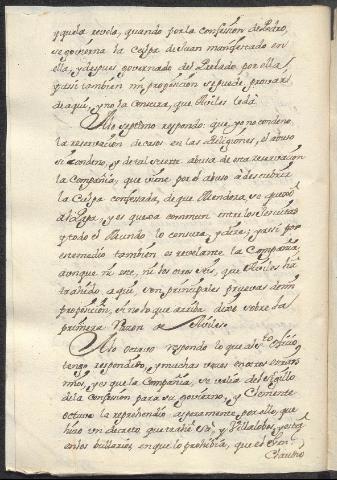 y que la revela, quando por la confession de Pedro,
se govierna la Culpa de Juan manifestada en
ella, y despues governado del Prelado por ella
y assi tambien mi proposicion se puede provar
de aqui, y no la Censura, que Aviles le dà.
Alo septimo respondo: que yo no condeno
la reservacion de casos en las Religiones, el abuso
si condeno, y de tal suerte abusa de esta Reservacion
la Compañia, que viene por el abuso à descubrir
la Culpa confessada, de que Mendoza se quexò
al Papa, y es quexa commun entre los Jesuitas
y todo el Mundo lo censura, y dize; y assi por
este medio tambien es revelante la Compañia
aunque ni este, ni los otros seis, que Aviles ha
trahido aqui, son principales pruevas de mi
proposicion, si no lo que arriba dixe sobre la
primera Razon de Aviles.
Alo octavo respondo lo que al
tengo respondido, y muchas vezes en otros escritos
mios, y es que la Compañia, se valia del sigilo
de la Confession para su govierno, y Clemente
octavo la reprehendiò asperamente por ello, que
hizo un decreto que trahe Villalobos, y està
en los bullarios, en que lo prohibia, que el
Claudio